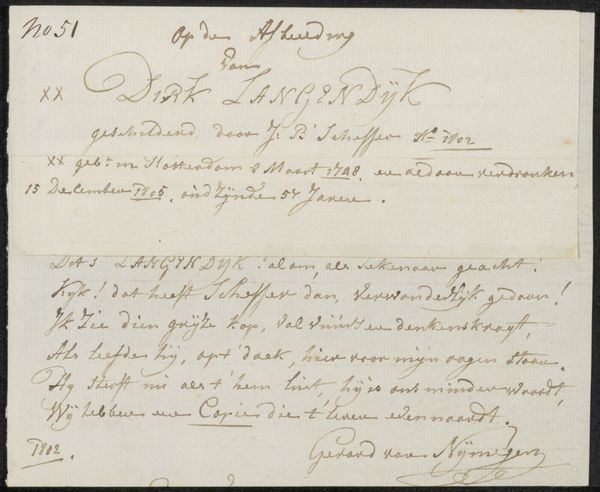 No 51
Op de Afbeelding
van
XX DIRK LANGENDŸK
geschilderd door J: B: Scheffer Ao 1802
XX gebn in Rotterdam 8 Maart 1748. en aldaar verdronken
15 December 1805. oud zÿnde 57 Jaren.
Dit's LANGENDŸK! alom, als tekenaar geacht!
Kÿk! dat heeft Scheffer dan, verwonderlÿk gedaan!
Ik zie dien grÿze kop, vol vuur en denkenskragt,
Als leefde hÿ, op't doek, hier voor mÿn oogen staan.
Hÿ sterft nu als t'hem lust, hÿ is ons minder waardt,
Wÿ hebben een Copie die t'leven evennaardt.
1802.
Gerard van Nÿmegen